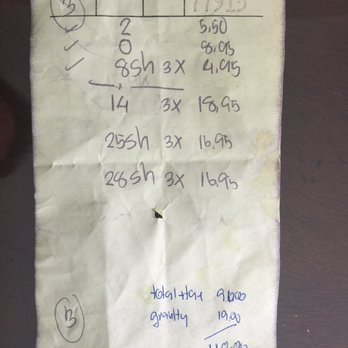 3
✓ 2 5.50
✓ 0 8.95
✓ 8sh 3x 4.95
14 3x 18.95
25sh 3x 16.95
28sh 3x 16.95
total + tax
gravity 19.00
3